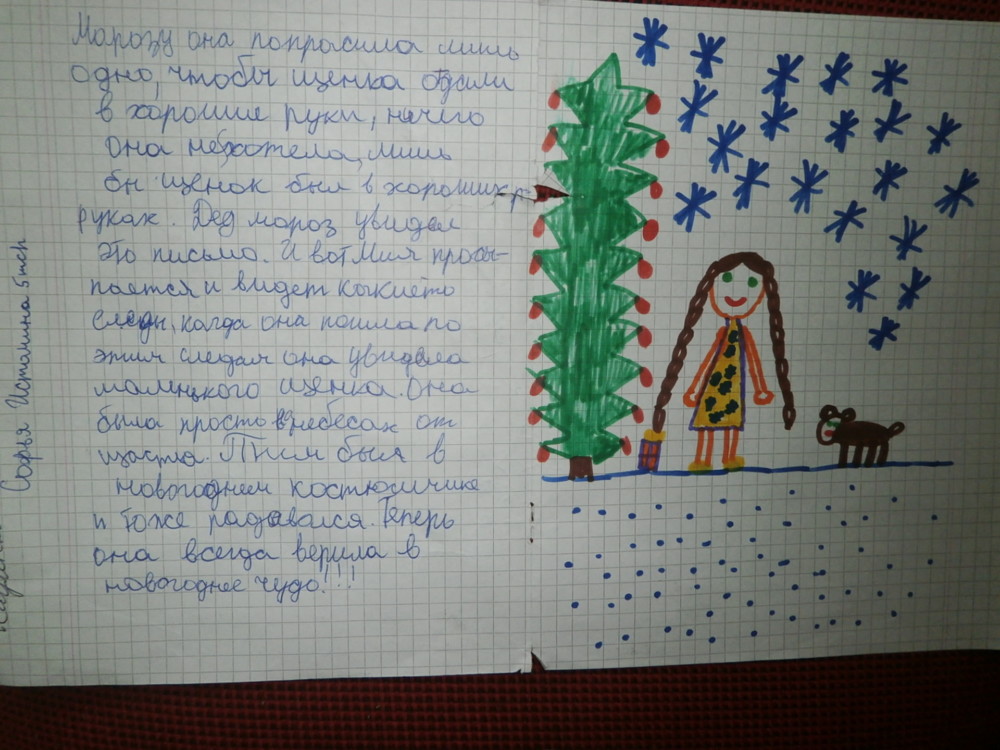 Морозу она попрасила лишь
одно, чтобы щенка отдали
в хорошие руки, ничего
она нехотела, лишь
бы щенок был в хороших
руках. Дед мороз увидел
это письмо. И вот Мия просы-
пается и видет кыкието
следы, когда она пошла по
этим следам она увидела
маленького щенка. Она
была просто в небесах от
щастья. Тим был в
новогоднем костюмчике
и тоже радовался. Теперь
она всегда верила в
новогоднее чудо!!!
Софья Истомина 5